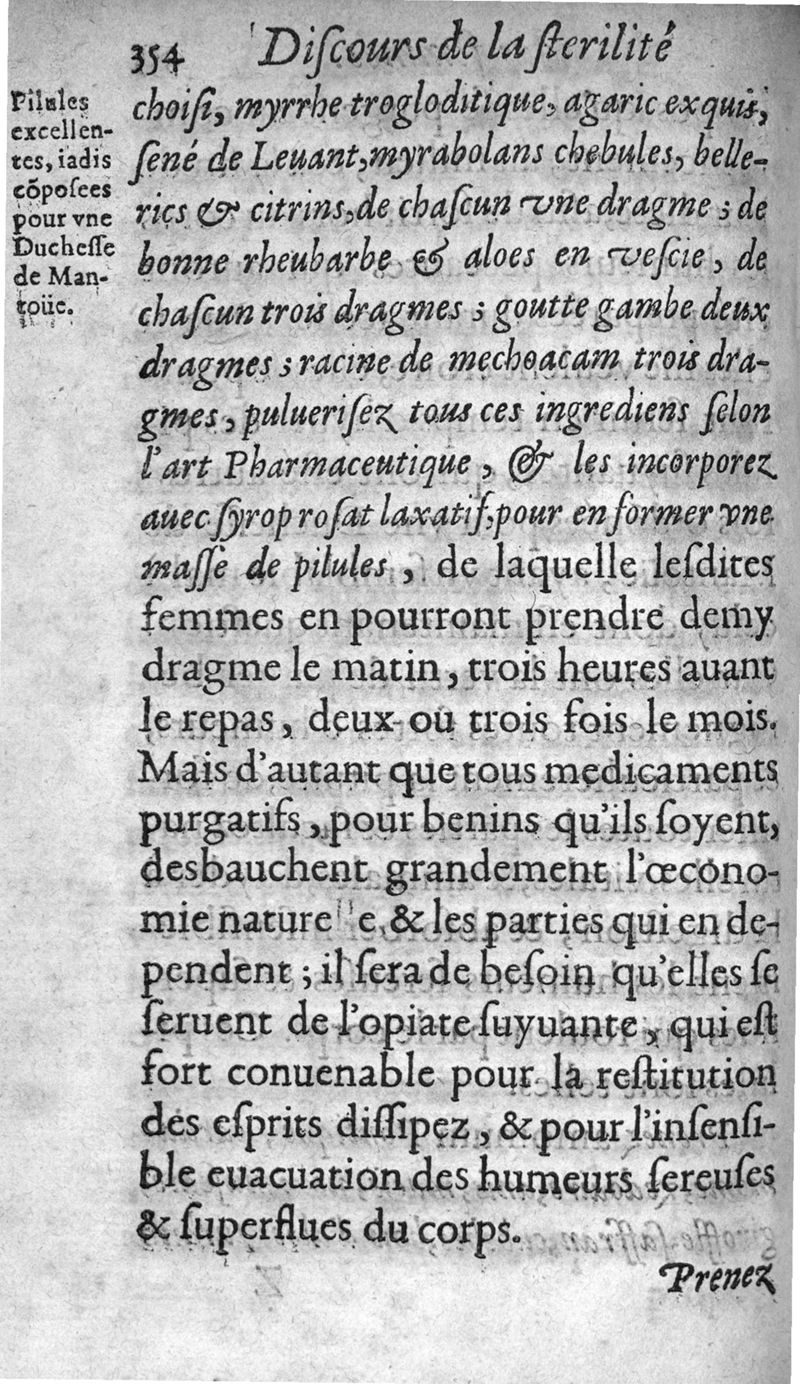 354 Diſcours de la ſterilité
Pilules
excellen-
tes, iadis
cõpoſees
pour vne
Ducheſſe
de Man-
toüe.
choiſi, myrrhe trogloditique, agaric exquis,
ſené de Leuant, myrabolans chebules, belle-
rics & citrins, de chaſcun vne dragme ; de
bonne rheubarbe & aloes en veſcie, de
chaſcun trois dragmes ; goutte gambe deux
dragmes ; racine de mechoacam trois dra-
gmes, pulueriſez tous ces ingrediens ſelon
l'art Pharmaceutique, & les incorporez
auec ſyrop roſat laxatif, pour en former vne
maſſe de pilules, de laquelle leſdites
femmes en pourront prendre demy
dragme le matin, trois heures auant
le repas, deux ou trois fois le mois.
Mais d'autant que tous medicaments
purgatifs, pour benins qu'ils ſoyent,
desbauchent grandement l'œcono-
mie nature e, & les parties qui en de-
pendent ; il ſera de beſoin qu'elles ſe
ſeruent de l'opiate ſuyuante, qui eſt
fort conuenable pour la reſtitution
des eſprits diſſipez, & pour l'inſenſi-
ble euacuation des humeurs ſereuſes
& ſuperflues du corps.
Prenez